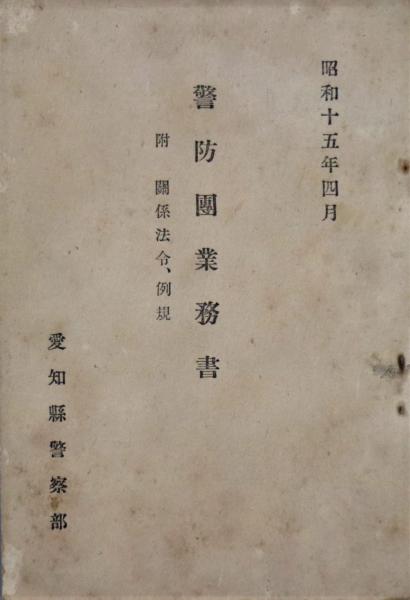 昭和十五年四月
警防團業務書
附　關係法令、例規
愛知縣警察部